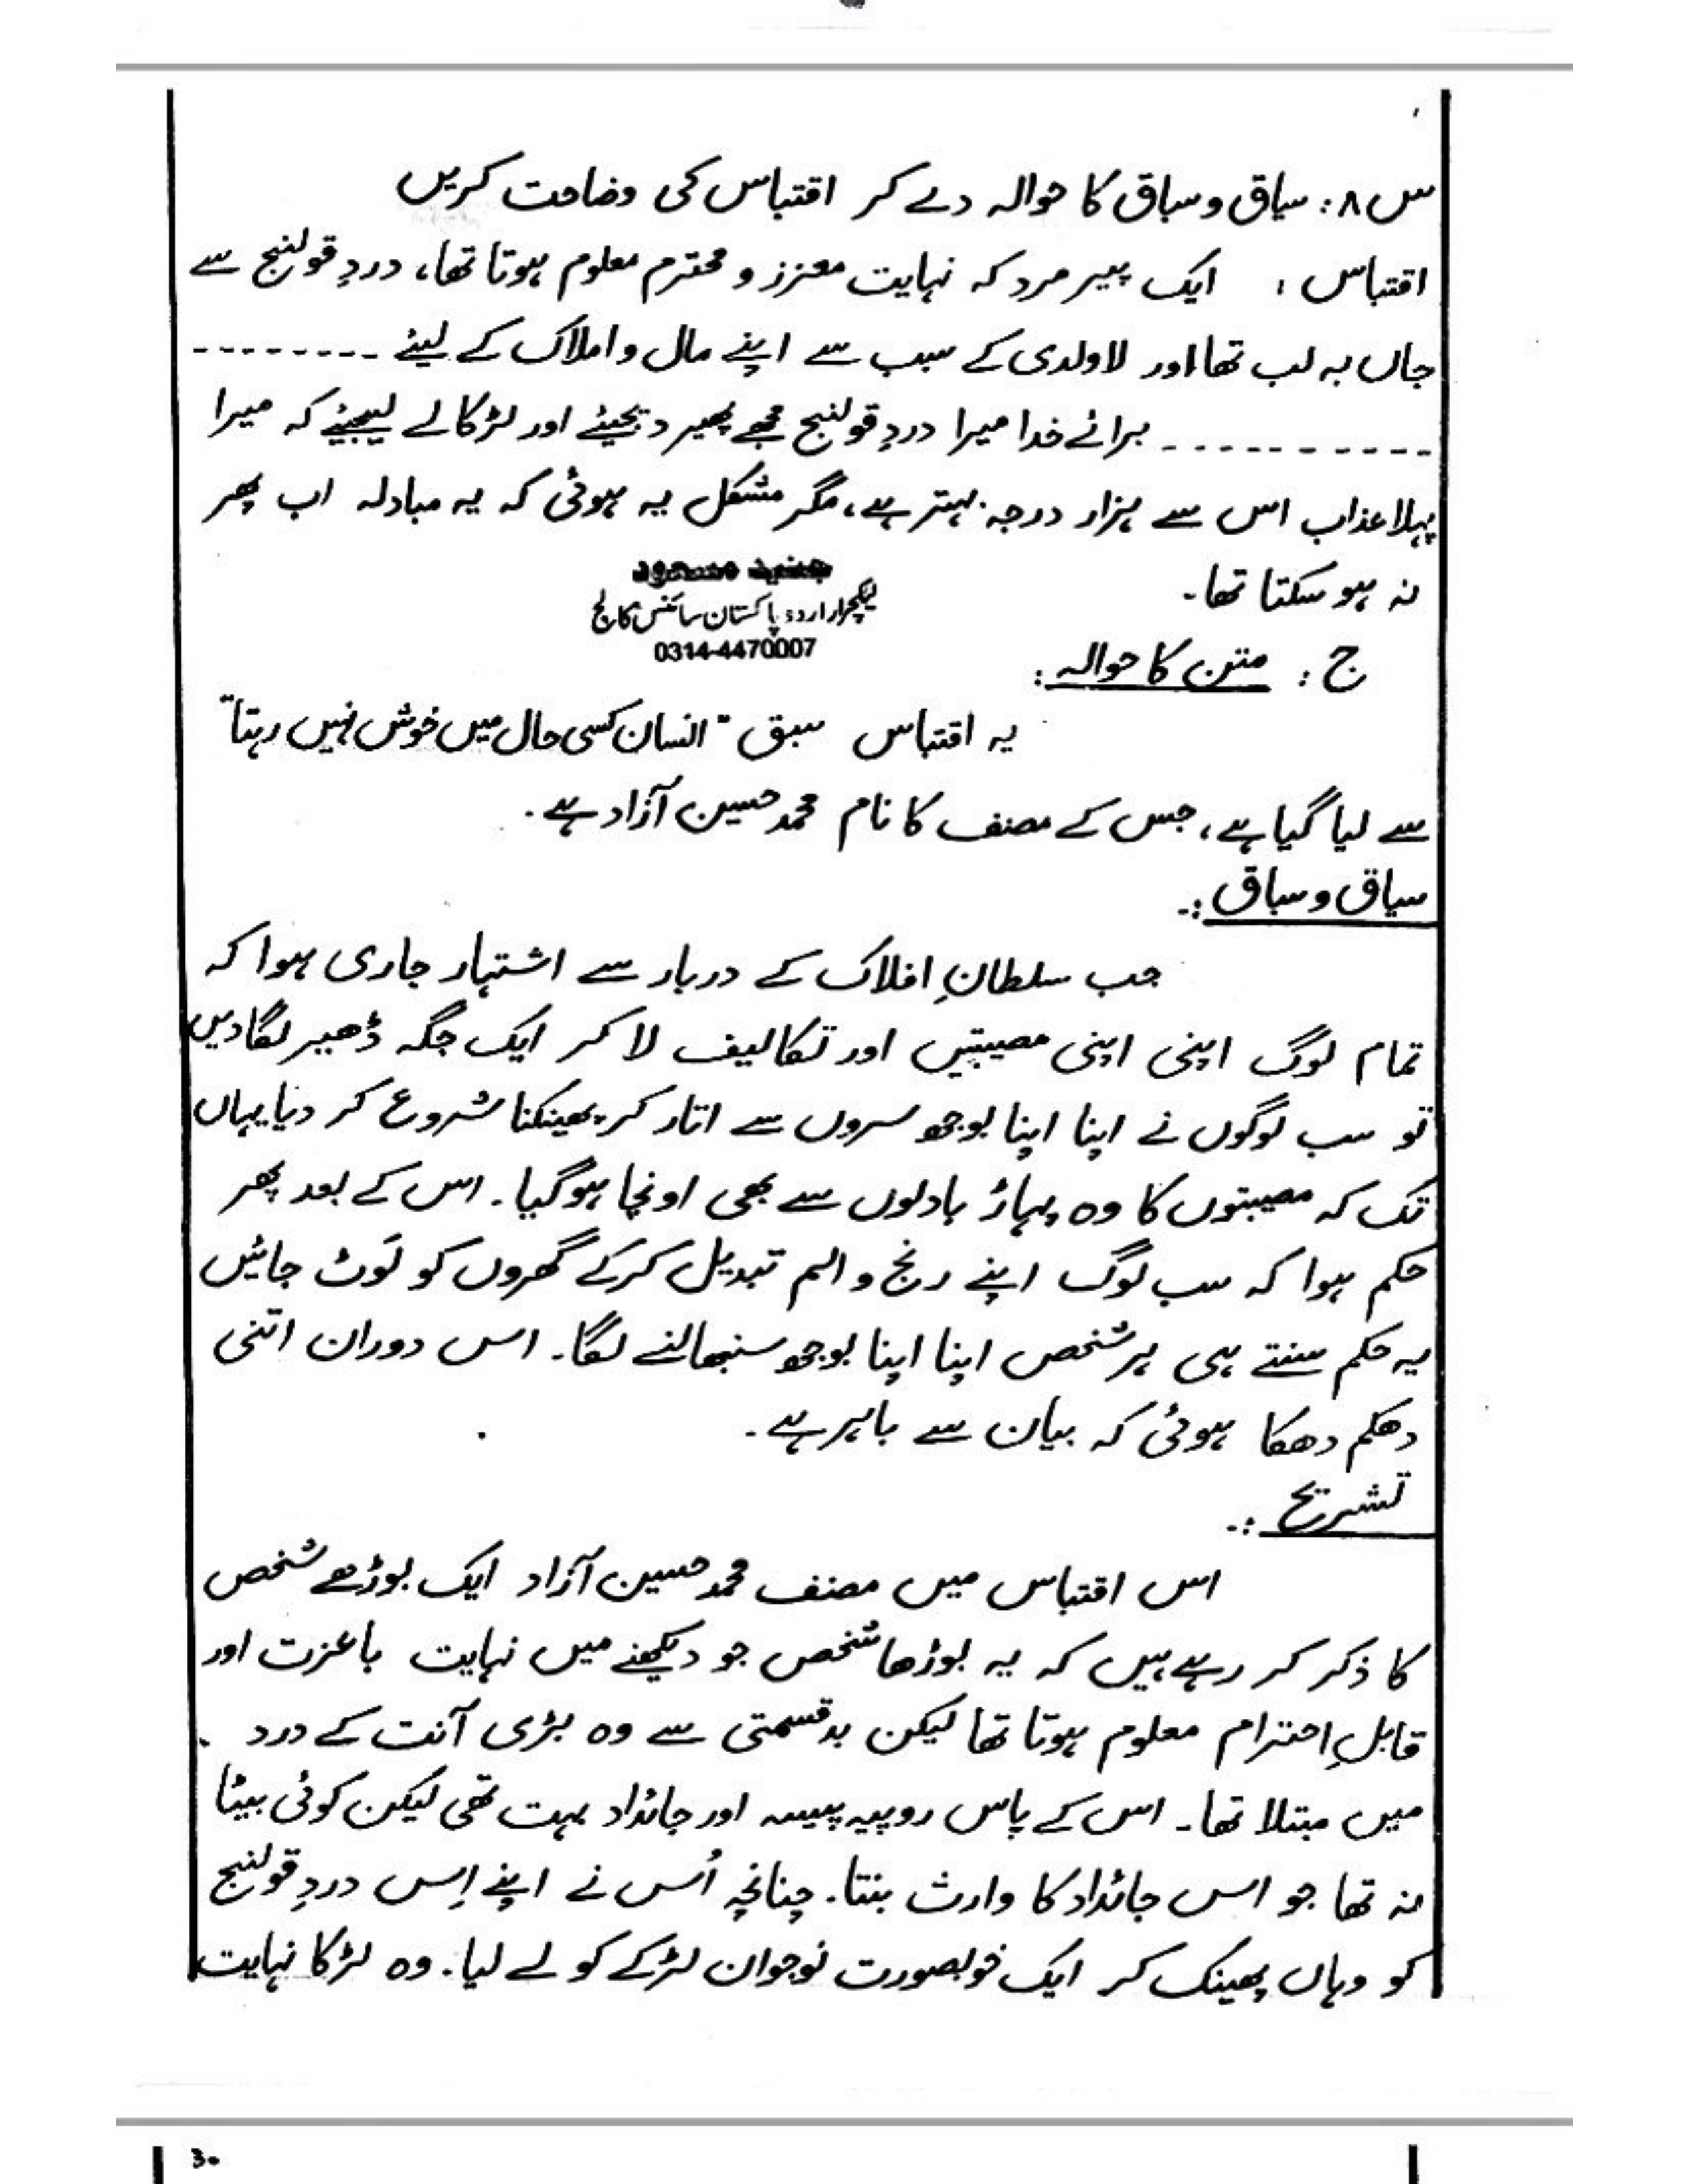 س۸: سیاق و سباق کا حوالہ دے کر اقتباس کی وضاحت کریں
اقتباس : ایک پیر مرد کہ نہایت معزز و محترم معلوم ہوتا تھا، دردِ قولنج سے
جاں بہ لب تھا اور لاولدی کے سبب سے اپنے مال و املاک کے لیئے --------
---------- برائے خدا میرا دردِ قولنج مجھے پھیر دیجیئے اور لڑکا لے لیجیئے کہ میرا
پہلا عذاب اس سے ہزار درجہ بہتر ہے، مگر مشکل یہ ہوئی کہ یہ مبادلہ اب پھر
نہ ہو سکتا تھا۔
جنید مسعود
لیکچرار اردو پاکستان سائنس کالج
0314-4470007
ج : متن کا حوالہ :
یہ اقتباس سبق "انسان کسی حال میں خوش نہیں رہتا"
سے لیا گیا ہے، جس کے مصنف کا نام محمد حسین آزاد ہے۔
سیاق و سباق :۔
جب سلطانِ افلاک کے دربار سے اشتہار جاری ہوا کہ
تمام لوگ اپنی اپنی مصیبتیں اور تکالیف لا کر ایک جگہ ڈھیر لگا دیں
تو سب لوگوں نے اپنا اپنا بوجھ سروں سے اتار کر پھینکنا شروع کر دیا یہاں
تک کہ مصیبتوں کا وہ پہاڑ بادلوں سے بھی اونچا ہو گیا۔ اس کے بعد پھر
حکم ہوا کہ سب لوگ اپنے رنج و الم تبدیل کرکے گھروں کو لَوٹ جائیں
یہ حکم سنتے ہی ہر شخص اپنا اپنا بوجھ سنبھالنے لگا۔ اس دوران اتنی
دھکم دھکا ہوئی کہ بیان سے باہر ہے۔
تشریح :۔
اس اقتباس میں مصنف محمد حسین آزاد ایک بوڑھے شخص
کا ذکر کر رہے ہیں کہ یہ بوڑھا شخص جو دیکھنے میں نہایت باعزت اور
قابلِ احترام معلوم ہوتا تھا لیکن بدقسمتی سے وہ بڑی آنت کے درد
میں مبتلا تھا۔ اس کے پاس روپیہ پیسہ اور جائداد بہت تھی لیکن کوئی بیٹا
نہ تھا جو اس جائداد کا وارث بنتا۔ چنانچہ اُس نے اپنے اِس دردِ قولنج
کو وہاں پھینک کر ایک خوبصورت نوجوان لڑکے کو لے لیا۔ وہ لڑکا نہایت
30